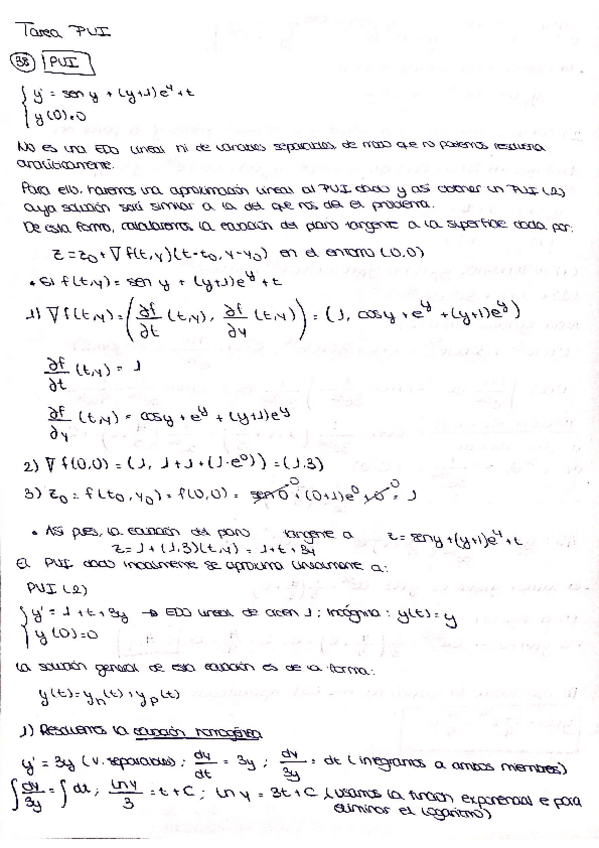 Tarea PUI
38 PUI
y' = sen y + (y+1)e^y + t
y(0)=0
No es una EDO lineal ni de variables separables de modo que no podemos resolverla
analíticamente.
Para ello, haremos una aproximación lineal al PUI dado y así obtener un PUI (2)
cuya solución será similar a la del que nos da el problema.
De esta forma, calcularemos la ecuación del plano tangente a la superficie dada por:
z = z₀ + ∇f(t,y)(t-t₀, y-y₀) en el entorno (0,0)
• Si f(t,y) = sen y + (y+1)e^y + t
1) ∇f(t,y) = (∂f/∂t (t,y), ∂f/∂y (t,y)) = (1, cosy + e^y + (y+1)e^y)
∂f/∂t (t,y) = 1
∂f/∂y (t,y) = cosy + e^y + (y+1)e^y
2) ∇f(0,0) = (1, 1+1+(1·e⁰)) = (1,3)
3) z₀ = f(t₀,y₀) = f(0,0) = sen 0 + (0+1)e⁰ + 0 = 1
• Así pues, la ecuación del plano tangente a z = seny + (y+1)e^y + t
z = 1 + (1,3)(t,y) = 1 + t + 3y
El PUI dado inicialmente se aproxima linealmente a:
PUI (2)
y' = 1 + t + 3y → EDO lineal de orden 1; incógnita: y(t) = y
y(0)=0
La solución general de esta ecuación es de la forma:
y(t) = y_h(t) + y_p(t)
1) Resolvemos la ecuación homogénea
y' = 3y (v. separables); dy/dt = 3y; dy/3y = dt (integramos a ambos miembros)
∫ dy/3y = ∫ dt; ln y/3 = t + C; ln y = 3t + C (usamos la función exponencial e para
eliminar el logaritmo)